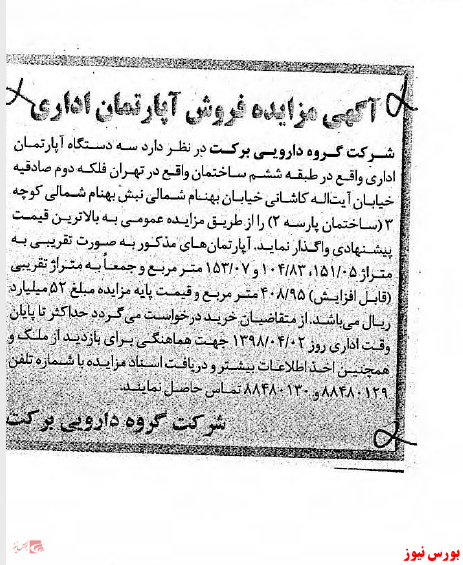 آگهی مزایده فروش آپارتمان اداری
شرکت گروه دارویی برکت در نظر دارد سه دستگاه آپارتمان
اداری واقع در طبقه ششم ساختمان واقع در تهران فلکه دوم صادقیه
خیابان آیت‌اله کاشانی خیابان بهنام شمالی نبش بهنام شمالی کوچه
۳ (ساختمان پارسه ۲) را از طریق مزایده عمومی به بالاترین قیمت
پیشنهادی واگذار نماید. آپارتمان‌های مذکور به صورت تقریبی به
متراژ ۱۵۱/۰۵، ۱۰۴/۸۳ و ۱۵۳/۰۷ متر مربع و جمعاً به متراژ تقریبی
(قابل افزایش) ۴۰۸/۹۵ متر مربع و قیمت پایه مزایده مبلغ ۵۲ میلیارد
ریال می‌باشد. از متقاضیان خرید درخواست می گردد حداکثر تا پایان
وقت اداری روز ۱۳۹۸/۰۴/۰۲ جهت هماهنگی برای بازدید از ملک و
همچنین اخذ اطلاعات بیشتر و دریافت اسناد مزایده با شماره تلفن
۸۸۴۸۰۱۲۹ و ۸۸۴۸۰۱۳۰ تماس حاصل نمایند.
شرکت گروه دارویی برکت
بورس نیوز